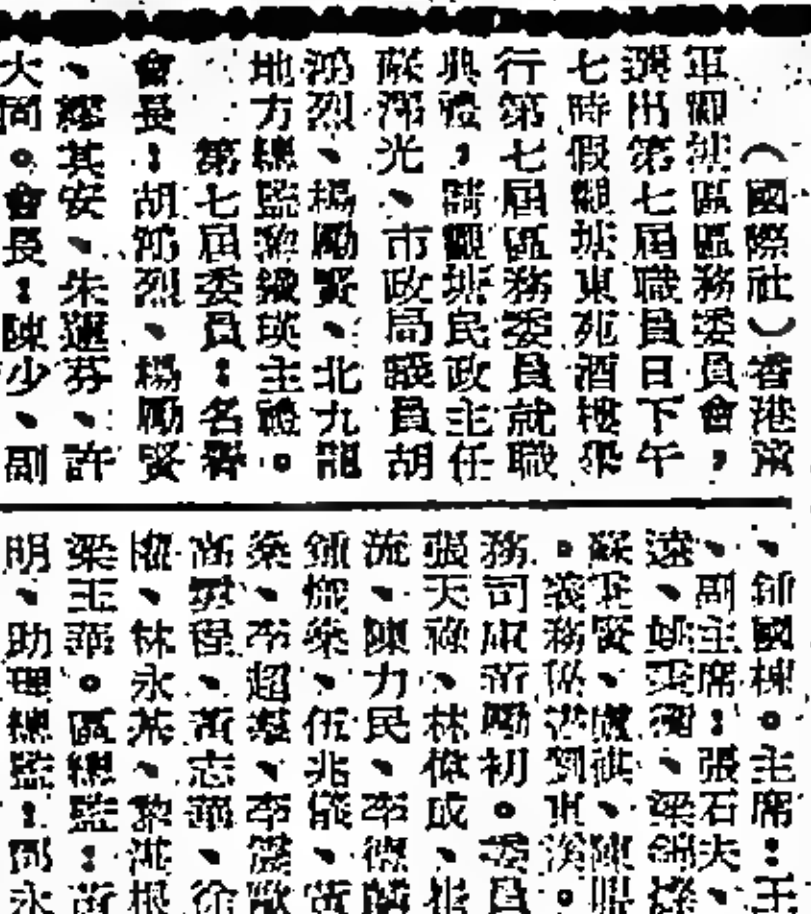 （國際社）香港
軍觀塘區區務委員會，
選出第七屆職員日下午
七時假觀塘東苑酒樓舉
行第七屆區務委員就職
典禮，請觀塘民政主任
蘇澤光、市政局議員胡
鴻烈、楊勵賢、北九龍
地方總監黎鐵瑛主禮。
第七屆委員：名譽
會長：胡鴻烈、楊勵賢
、繆其安、朱蓮芬、許
大同。會長：陳少、副
、國棟。主席：王
、副主席：張石夫、
遠、姚、梁錦
蘇賢、盧、陳照
。義務劉東溪。
務司庫黃勵初。委員
張天祿、林偉成、崔
流、陳力民、李德麟
鍾、伍兆、黃
、李超、李震歐
高程、黃志華、徐
權、林永、黎湛根
梁玉華。區總監：黃
明、助理總監：永